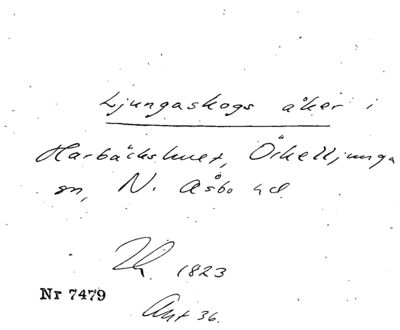 Ljungaskogs åker i
Harbäckshult, Örkelljunga
sn, N. Åsbo hd
1823
Nr 7479
Akt 36.